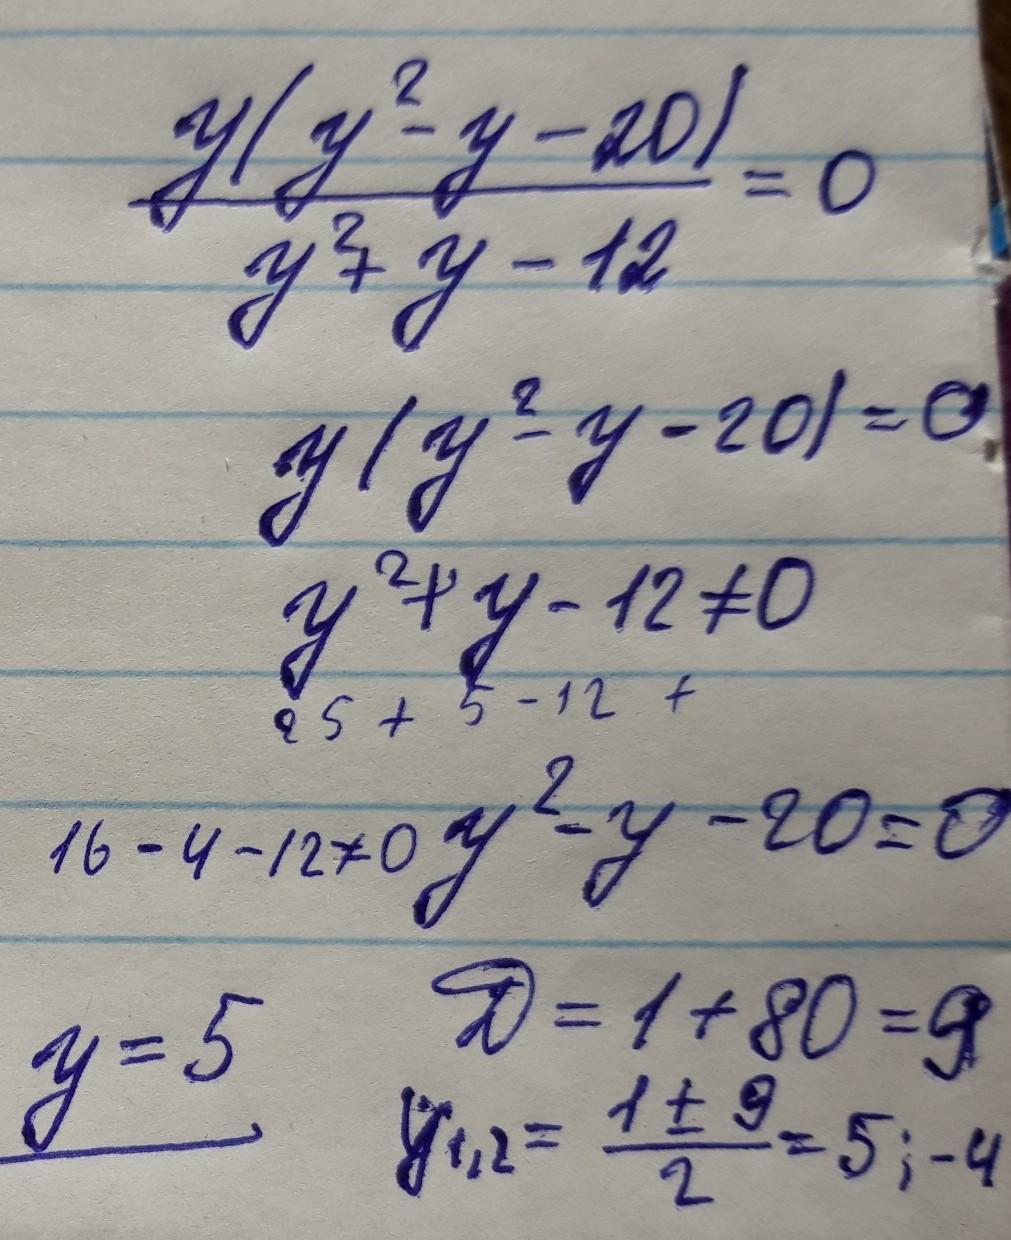 y(y² - y - 20)
/ (y² + y - 12) = 0
y(y² - y - 20) = 0
y² + y - 12 ≠ 0
25 + 5 - 12 +
16 - 4 - 12 ≠ 0 y² - y - 20 = 0
y = 5 D = 1 + 80 = 9
y₁,₂ = (1 ± 9)/2 = 5; -4